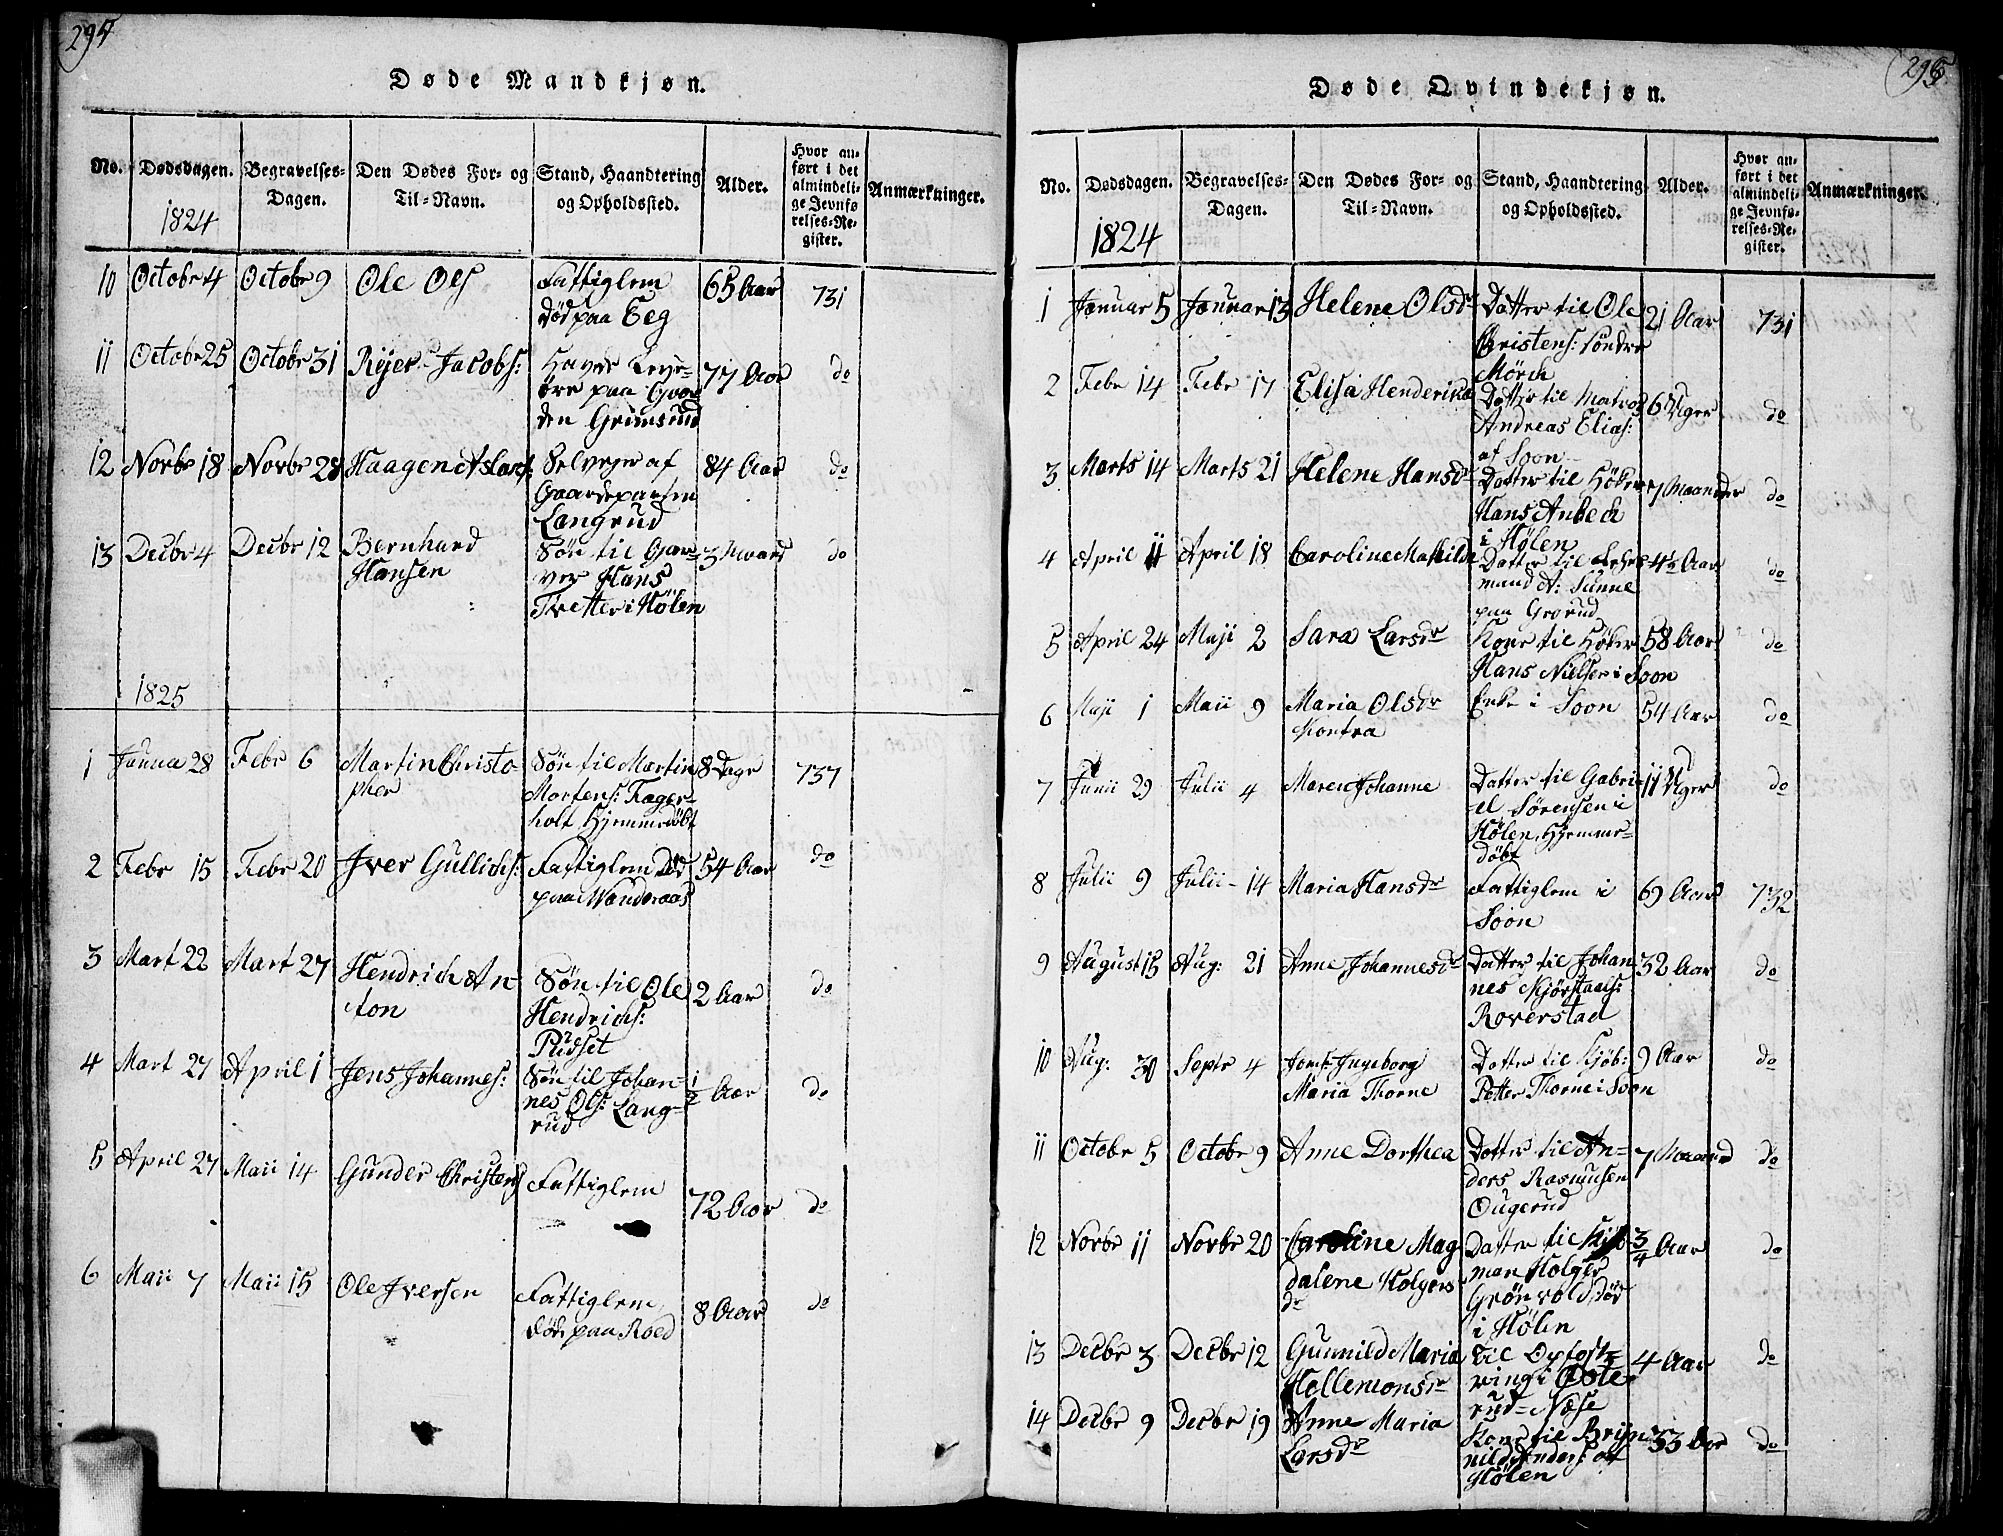 294
Døde Mandkjøn.
No. Dødsdagen. Begravelses-Dagen. Den Dødes For- og Til-Navn. Stand, Haandtering og Opholdssted. Alder. Hvor anført i det almindelige Jevnførelses-Register. Anmærkninger.
1824
10 Octobr 4 Octobr 9 Ole Ols Fattiglem 65 Aar 731
død paa Eeg
11 Octobr 25 Octobr 31 Rejer Jacobs: 77 Aar do
paa Gaar
den Grimsrud
12 Novbr 18 Novbr 28 Haagen Aslacs Selvejer af 84 Aar do
Gaardeparten
Langrud
13 Decbr 4 Decbr 12 Bernhard Søn til Gar- 3 Maand do
Hansen ver Hans
Tvetter i Hølen
1825
1 Janua 28 Febr 6 Martin Christo- Søn til Martin 8 Dage 737
pher Mortens: Fager-
holt Hjemmedøbt
2 Febr 15 Febr 20 Iver Gullichs: Fattiglem Død 54 Aar do
paa Wanderaas
3 Mart 22 Mart 27 Hendrich An Søn til Ole 2 Aar do
ton Hendrichs:
Pudset
4 Mart 27 April 1 Jens Johannes: Søn til Johan- 1/2 Aar do
nes Ols: Lang-
rud
5 April 27 Maii 14 Gunder Christens Fattiglem 72 Aar do
6 Maii 7 Maii 15 Ole Iversen Fattiglem 8 Aar do
død paa Roed
295
Døde Qvindekjøn.
No. Dødsdagen. Begravelses-Dagen. Den Dødes For- og Til-Navn. Stand, Haandtering og Opholdssted. Alder. Hvor anført i det almindelige Jevnførelses-Register. Anmærkninger.
1824
1 Januar 5 Januar 13 Helene Olsdr Datter til Ole 21 Aar 731
Christens: Søndre
Mørch
2 Febr 14 Febr 17 Elisa Henderikæ Datter til Matros 6 Uger do
Andreas Elias:
af Soon
3 Marts 14 Marts 21 Helene Hansdr Datter til Høker 7 Maaneder do
Hans Anbech
i Hølen
4 April 11 April 18 Caroline Mathilde Datter til Lehns 4½ Aar do
mand A: Sunne
paa Grorud
5 April 24 Maji 2 Sara Larsdr Kone til Høker 58 Aar do
Hans Nielsen i Soon
6 Maji 1 Maii 9 Maria Olsdr Enke i Soon 54 Aar do
Montra
7 Junii 29 Julii 4 Maren Johanne Datter til Gabri- 11 Uger do
el Sørensen i
Hølen, Hjemme-
døbt
8 Julii 9 Julii 14 Maria Hansdr Fattiglem i 69 Aar 732
Soon
9 August 15 Aug: 21 Anne Johannesdr Datter til Johan 32 Aar do
nes Kjørstads:
Roverstad
10 Aug: 30 Septr 4 Jomf: Ingeborg Datter til Kjøb: 9 Aar do
Maria Thorne Petter Thorne i Soon
11 Octobr 5 Octobr 9 Anne Dorthea Datter til An- 7 Maaned do
ders Rasmusen
Ougerud
12 Novbr 11 Novbr 20 Caroline Mag Datter til Kjøb 3/4 Aar do
dalene Holgers man Holger
dr Grønvold død
i Hølen
13 Decbr 3 Decbr 12 Gunnild Maria Til Opfost- 4 Aar do
Hellemonsdr ring i Oste
rud-Næse
14 Decbr 9 Decbr 19 Anne Maria Kone til Bryn 33 Aar do
Larsdr nild Anders: af
Hølen